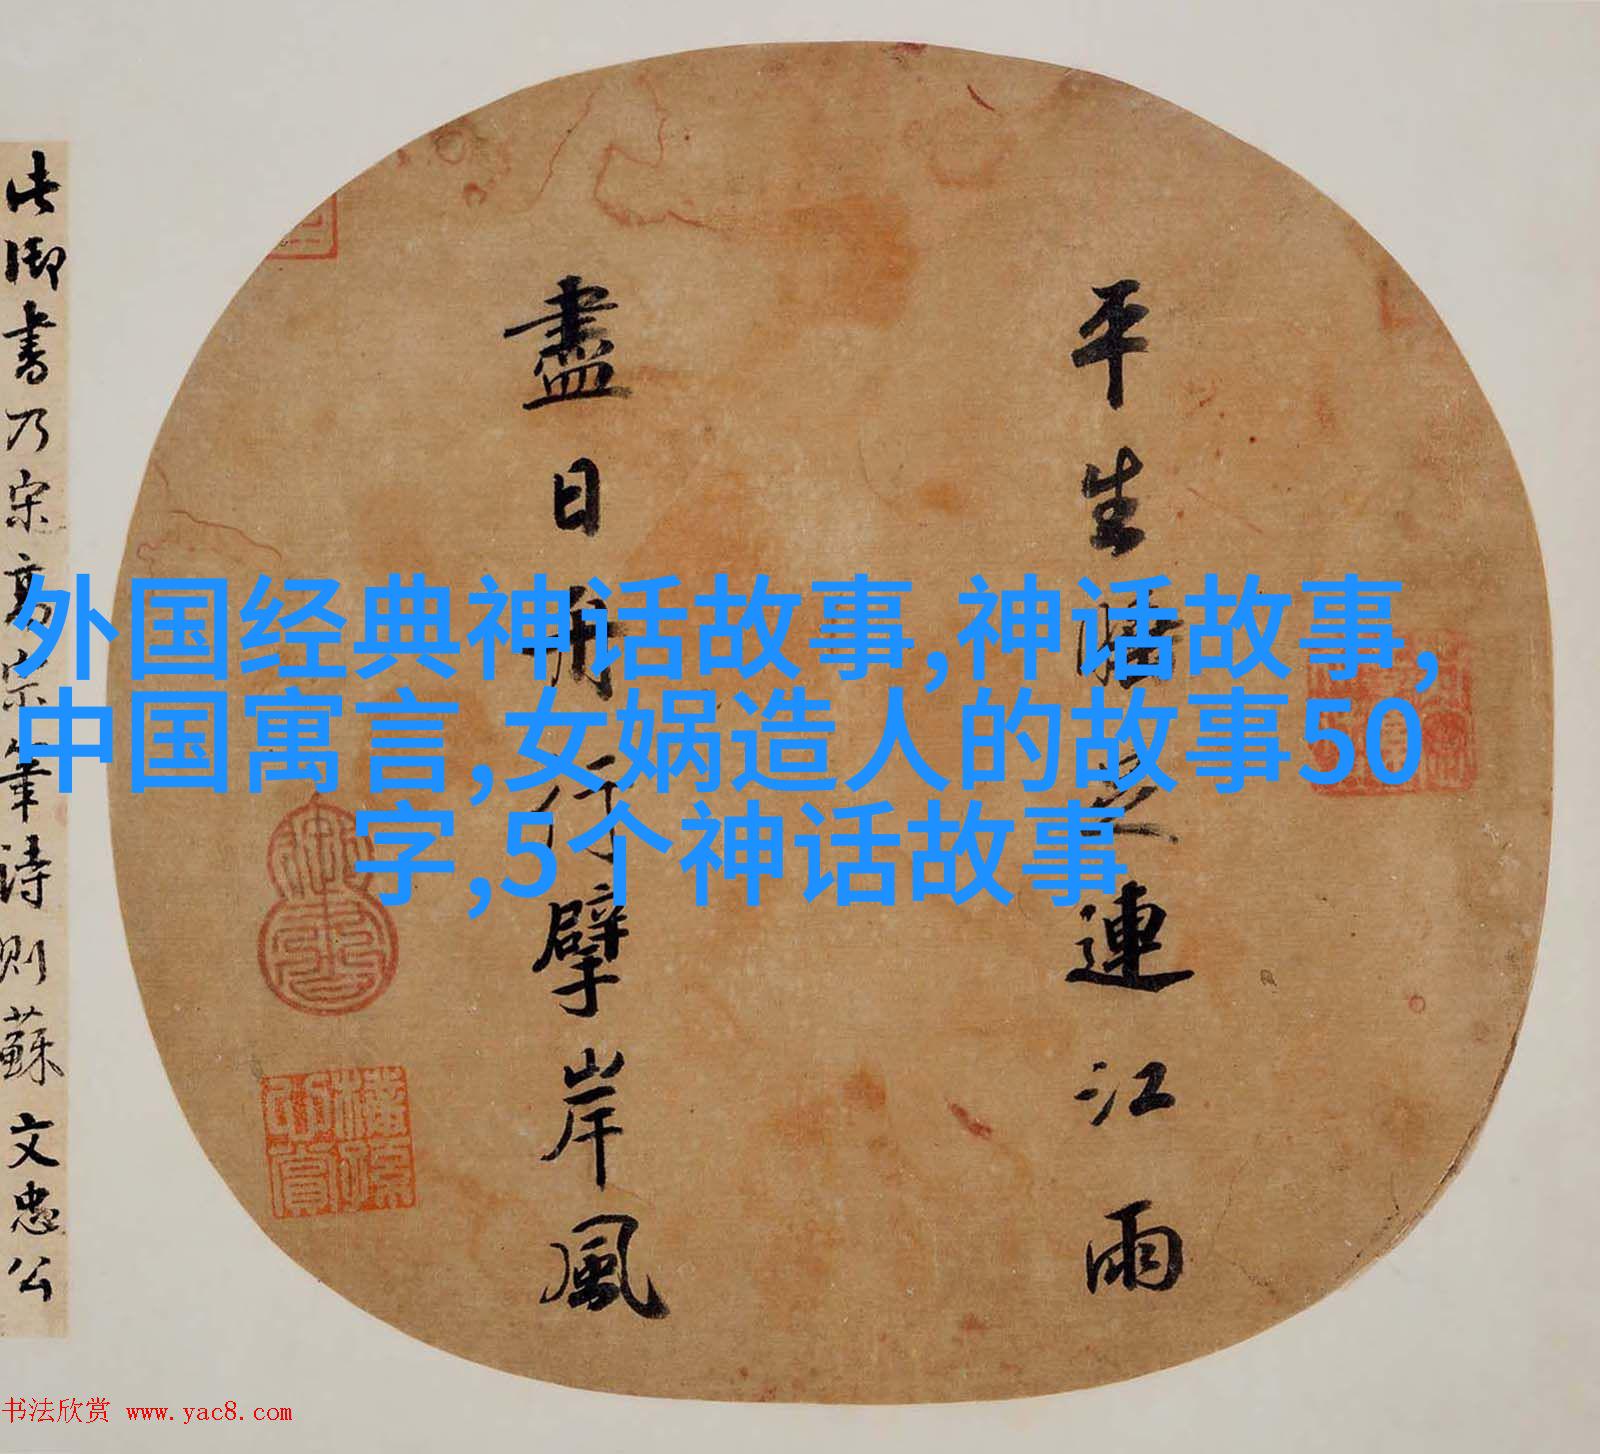 平生睡足連江雨
盡日舟行擘岸風
此御書乃宋高宗筆詩則蘇文忠公
外国经典神话故事,神话故事,
中国寓言,女娲造人的故事50
字,5个神话故事
书法欣赏 www.yac8.com